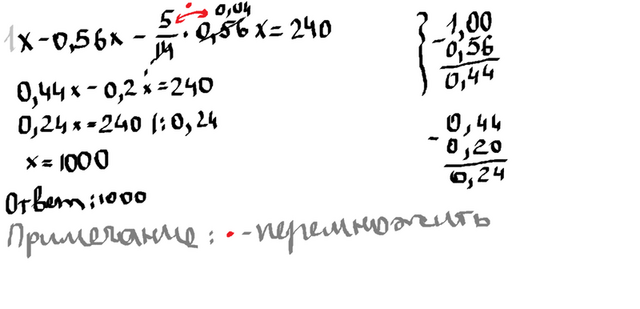 1x - 0,56x - 5/14 · 0,56 x = 240
0,04
0,44x - 0,2x = 240
0,24x = 240 |: 0,24
x = 1000
Ответ: 1000
Примечание: · - перемножить
1,00
- 0,56
0,44
0,44
- 0,20
0,24